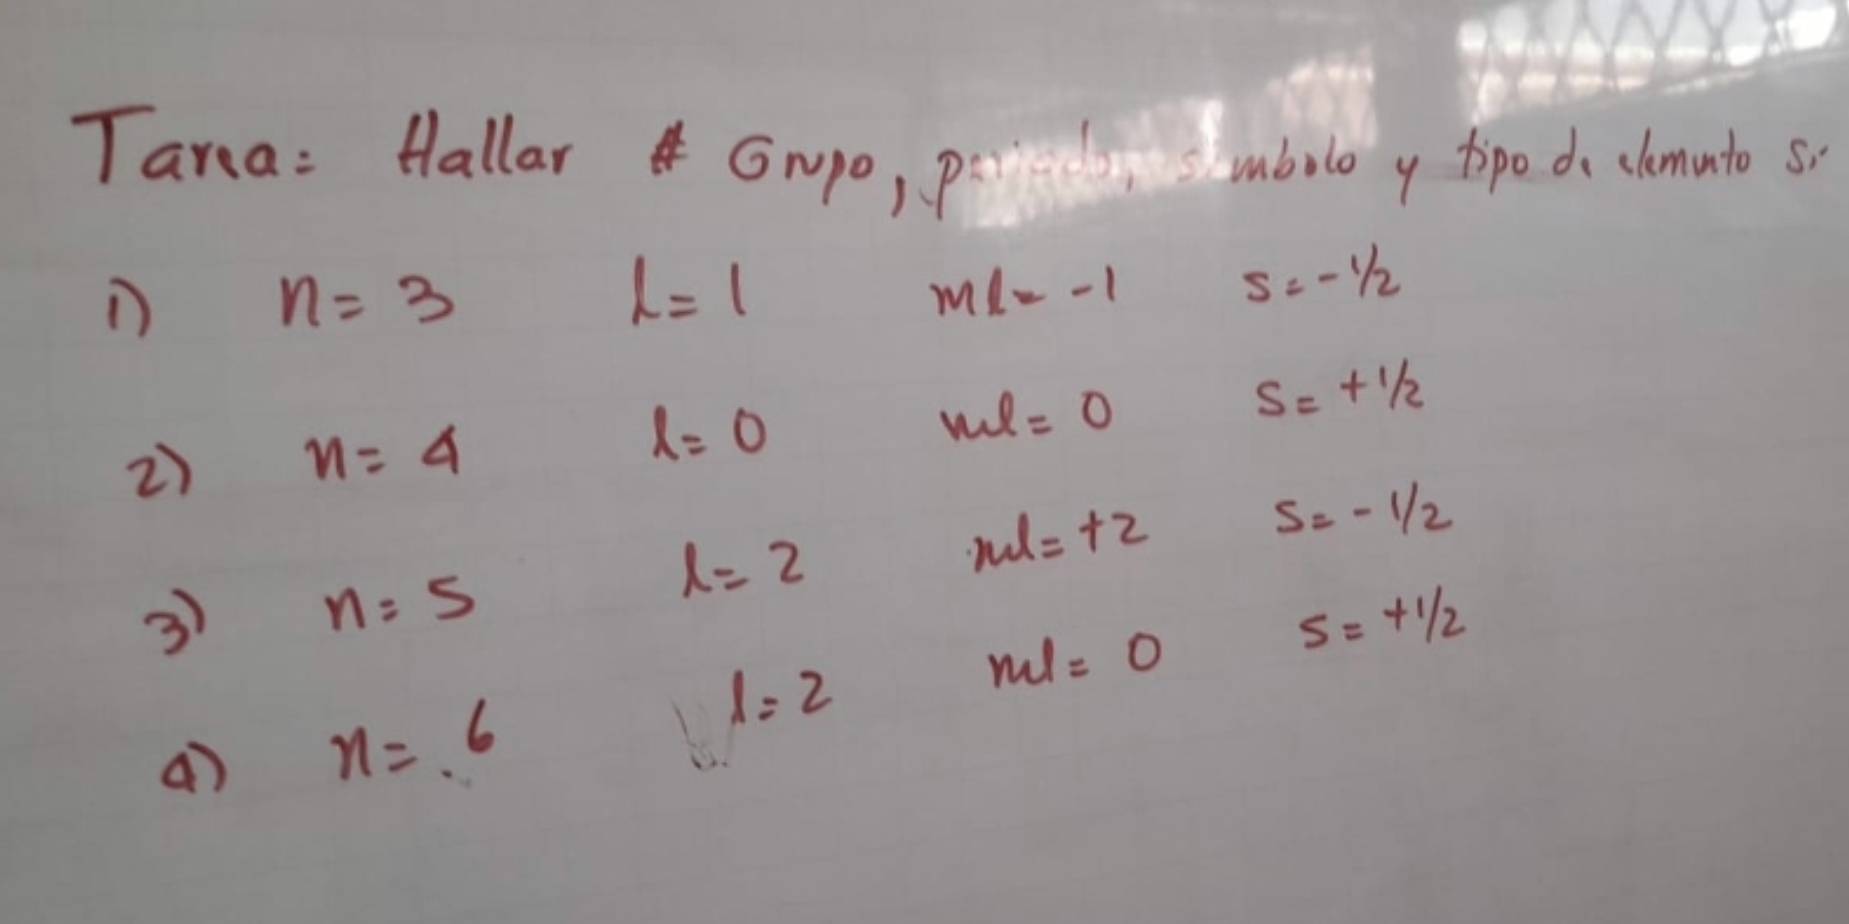 Tarea: Hallar # Grupo, periodo, símbolo y tipo de elemento si
1) n = 3 l = 1 ml = -1 s = -1/2
2) n = 4 l = 0 ml = 0 s = +1/2
3) n = 5 l = 2 ml = +2 s = -1/2
4) n = 6 l = 2 ml = 0 s = +1/2